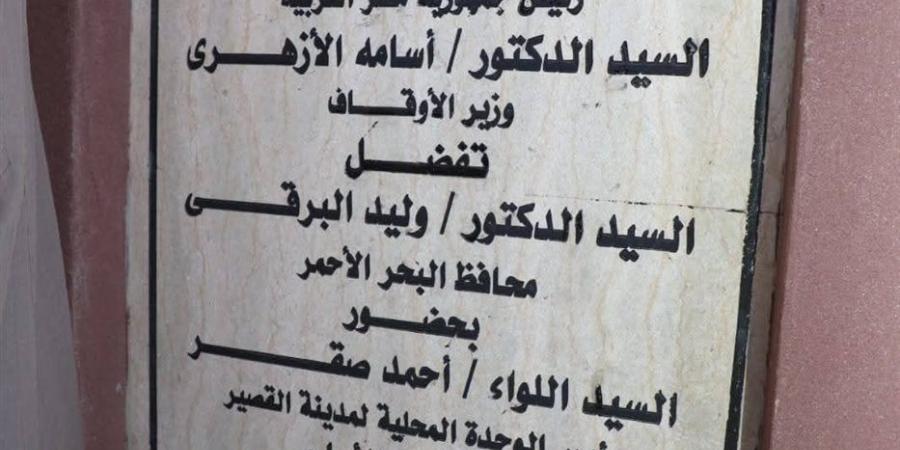 رئيس جمهورية مصر العربية
السيد الدكتور / أسامه الأزهرى
وزير الأوقاف
تفضل
السيد الدكتور / وليد البرقى
محافظ البحر الأحمر
بحضور
السيد اللواء / أحمد صقر
الوحدة المحلية لمدينة القصير